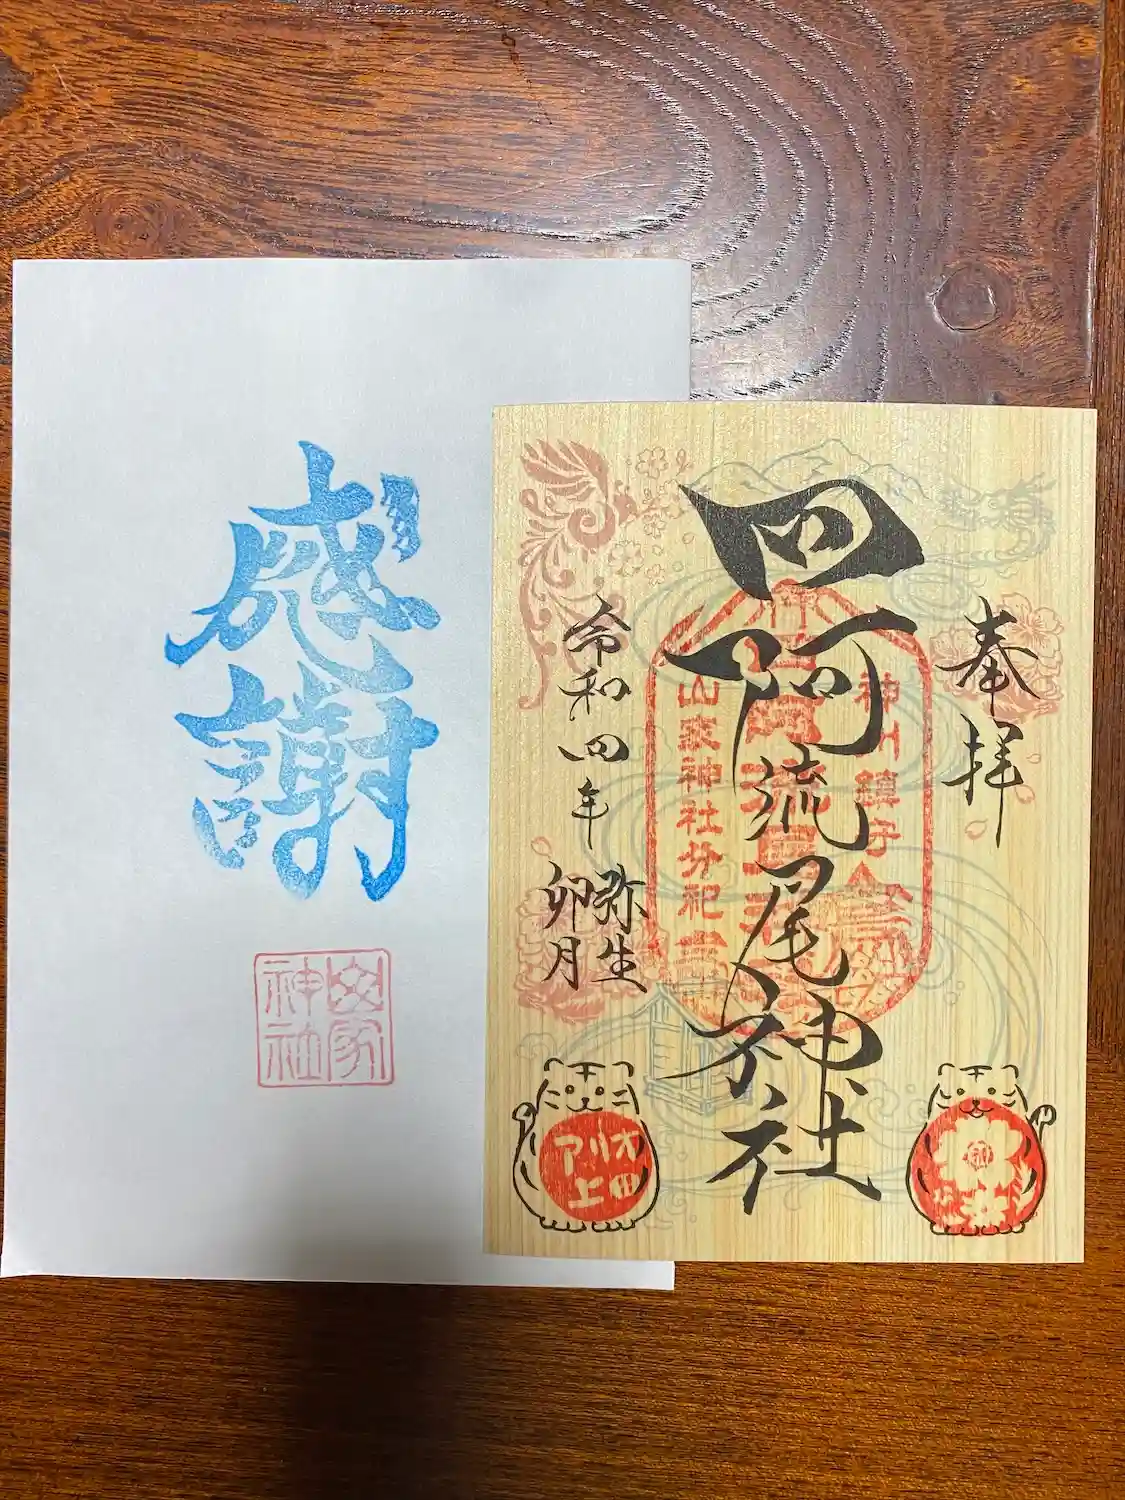 感謝
山家
神社
奉拝
四阿流尾神社
令和四年
弥生
卯月
神川鎮子
山家神社分祀
アリオ
上田